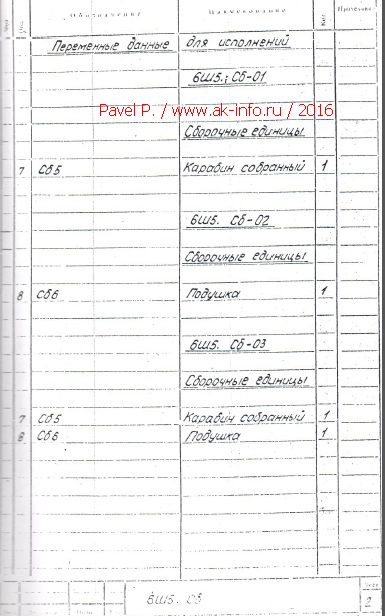 Обозначение Наименование Кол. Примечание
Переменные данные для исполнений
6Ш5.; Сб-01
Pavel P. / www.ak-info.ru / 2016
Сборочные единицы
7 Сб5 Карабин собранный 1
6Ш5. Сб-02
Сборочные единицы
8 Сб6 Подушка 1
6Ш5. Сб-03
Сборочные единицы
7 Сб5 Карабин собранный 1
8 Сб6 Подушка 1
6Ш5. Сб
2